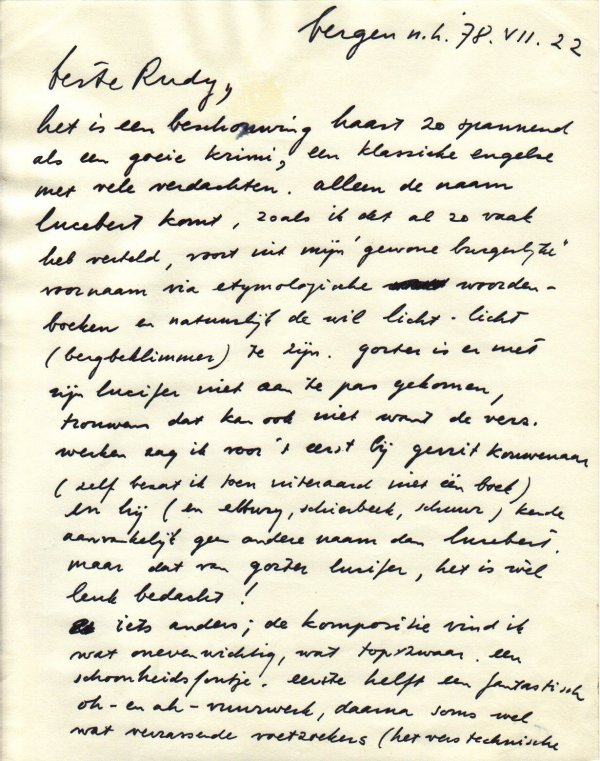 bergen n.h. 78.VII.22
beste Rudy,
het is een beschouwing haast zo spannend
als een goeie krimi, een klassieke engelse
met vele verdachten. alleen de naam
lucebert komt, zoals ik dat al zo vaak
heb verteld, voort uit mijn "gewone burgerlijke"
voornaam via etymologische woorden-
boeken en natuurlijk de wil licht-licht
(bergbeklimmer) te zijn. gorter is er met
zijn lucifer niet aan te pas gekomen,
trouwens dat kan ook niet want de verz.
werken zag ik voor 't eerst bij gerrit kouwenaar
(zelf bezat ik toen uiteraard niet één boek)
en hij (en elburg, schierbeek, schuur) kende
aanvankelijk geen andere naam dan lucebert.
maar dat van gorter lucifer, het is wèl
leuk bedacht!
iets anders; de kompositie vind ik
wat onevenwichtig, wat topzwaar. een
schoonheidsfoutje. eerste helft een fantastisch
oh- en ah-vuurwerk, daarna soms wel
wat verrassende voetzoekers (het verstechnische